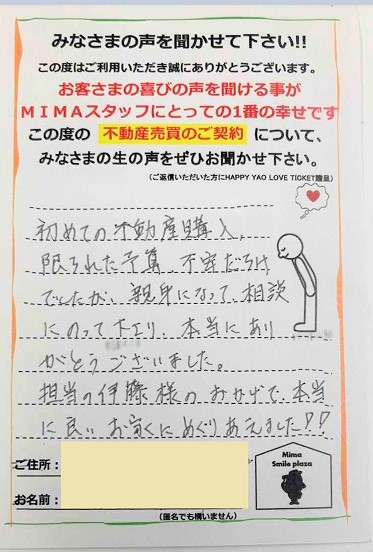 みなさまの声を聞かせて下さい!!
この度はご利用いただき誠にありがとうございます。
お客さまの喜びの声を聞ける事が
MIMAスタッフにとっての1番の幸せです
この度の 不動産売買のご契約 について、
みなさまの生の声をぜひお聞かせ下さい。
(ご返信いただいた方にHAPPY YAO LOVE TICKET贈呈)
初めての不動産購入、
限られた予算、不安だらけ
でしたが、親身になって相談
にのって下さり、本当にあり
がとうございました。
担当の伊藤様のおかげで、本当
に良いお家にめぐりあえました!!
ご住所:
お名前:
(匿名でも構いません)
Mima
Smile plaza